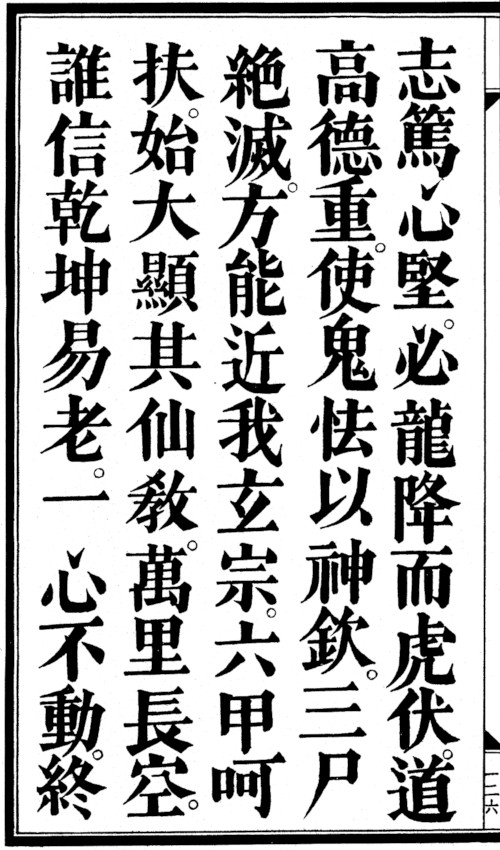 志篤心堅。必龍降而虎伏。道
高德重。使鬼怯以神欽。三尸
絕滅。方能近我玄宗。六甲呵
扶。始大顯其仙敎。萬里長空。
誰信乾坤易老。一心不動。終
一二六